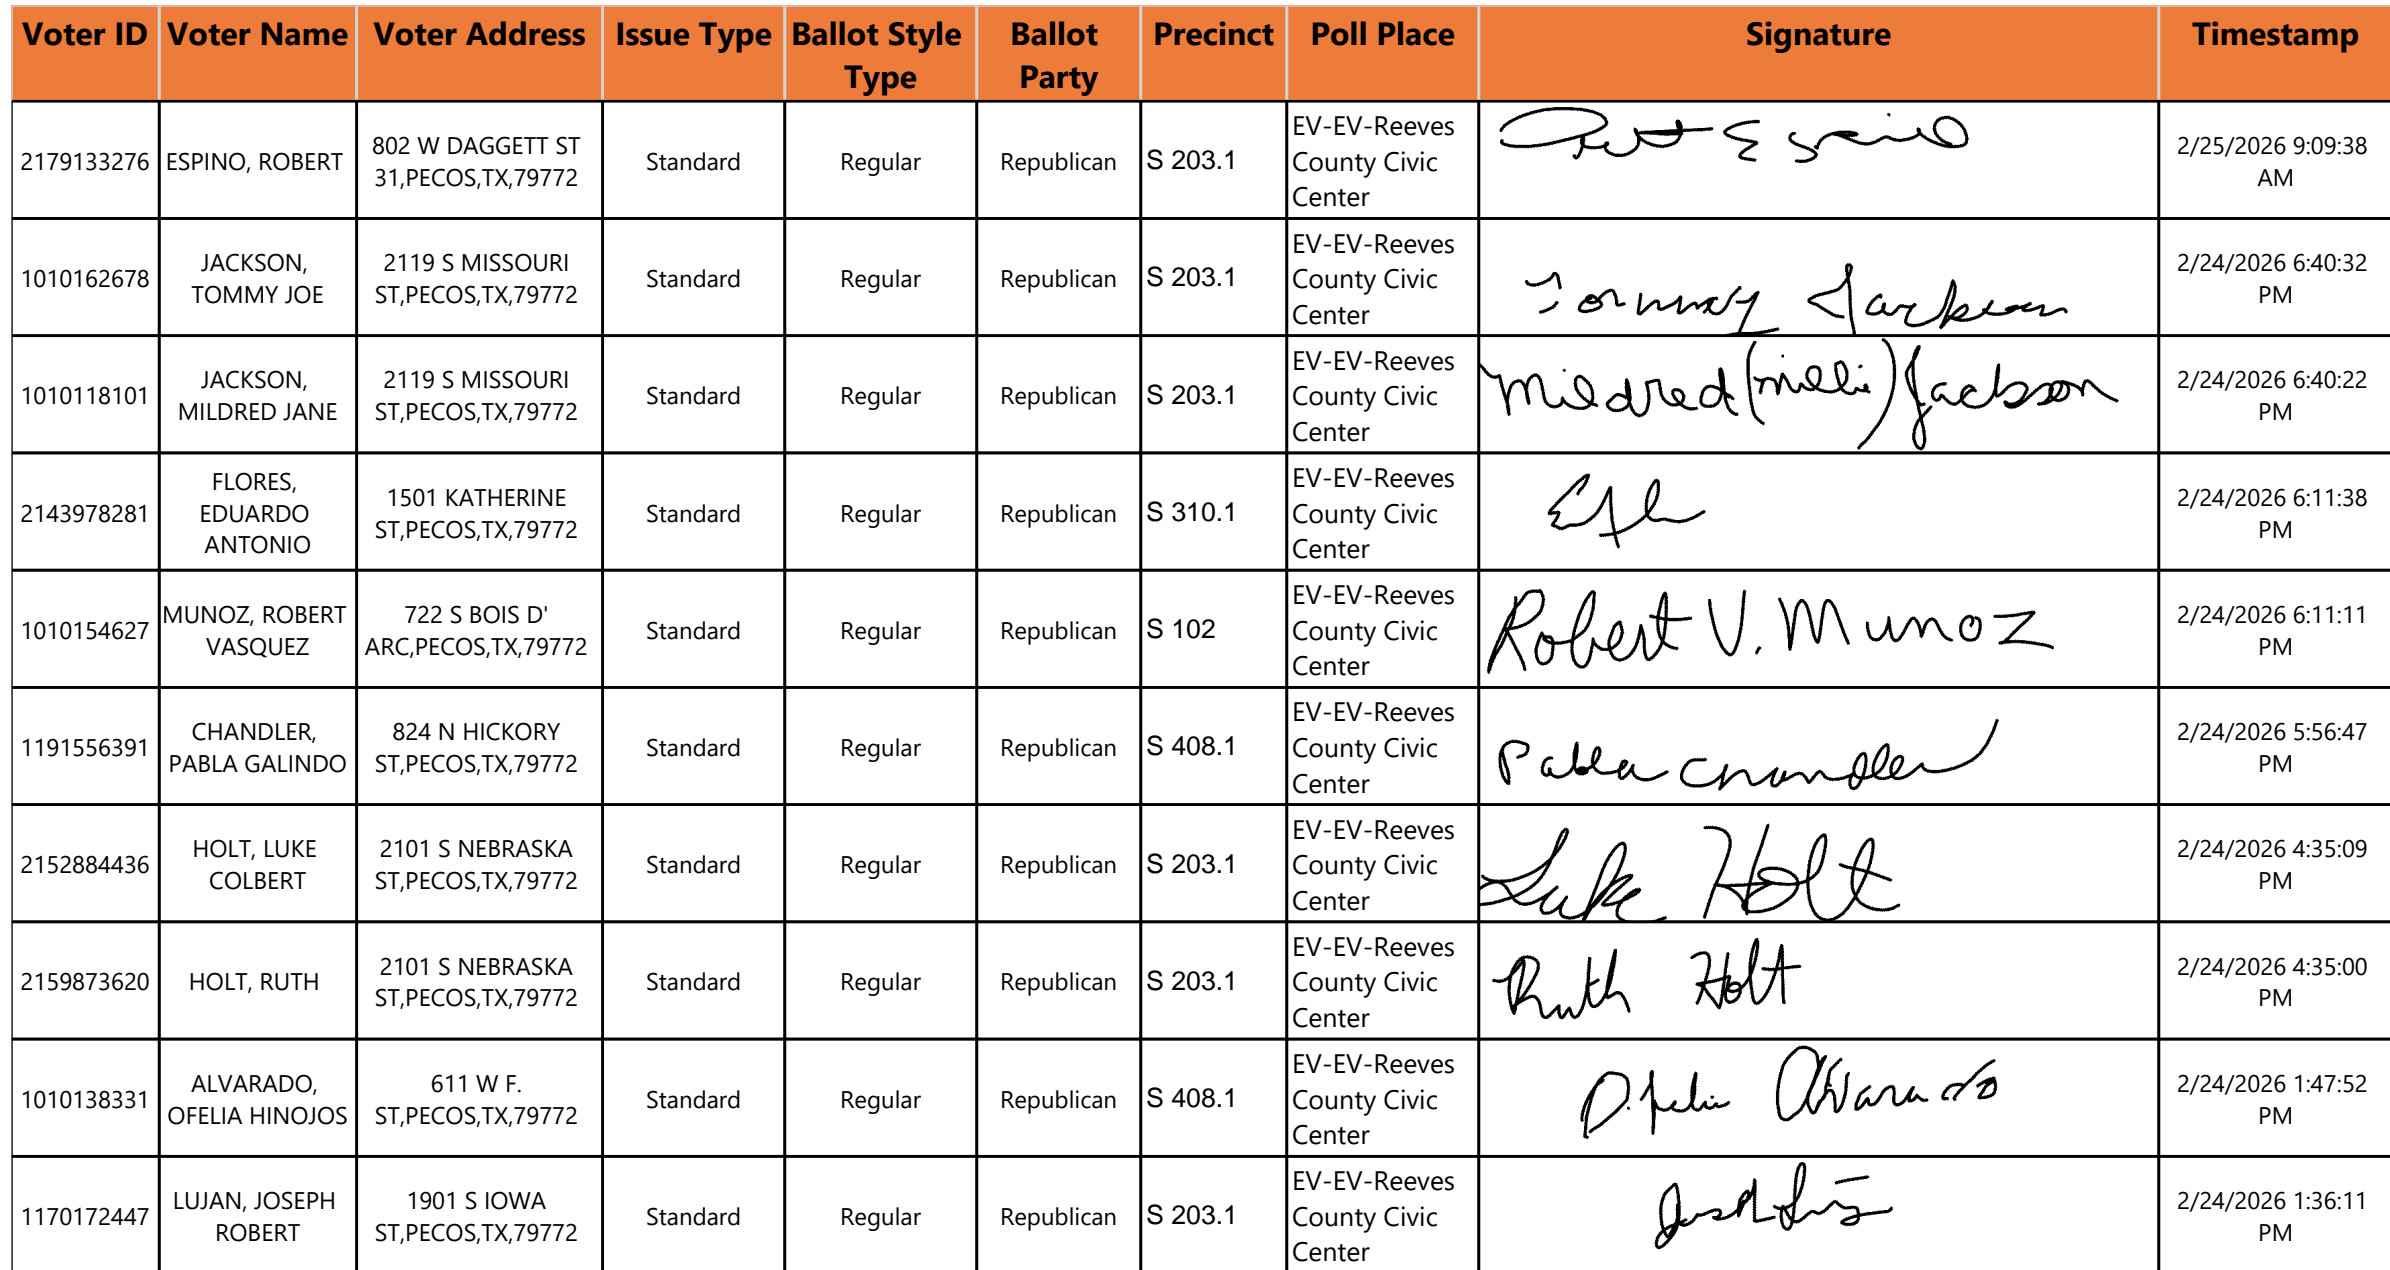 Voter ID Voter Name Voter Address Issue Type Ballot Style Type Ballot Party Precinct Poll Place Signature Timestamp
2179133276 ESPINO, ROBERT 802 W DAGGETT ST 31,PECOS,TX,79772 Standard Regular Republican S 203.1 EV-EV-Reeves County Civic Center 2/25/2026 9:09:38 AM
1010162678 JACKSON, TOMMY JOE 2119 S MISSOURI ST,PECOS,TX,79772 Standard Regular Republican S 203.1 EV-EV-Reeves County Civic Center Tommy Jackson 2/24/2026 6:40:32 PM
1010118101 JACKSON, MILDRED JANE 2119 S MISSOURI ST,PECOS,TX,79772 Standard Regular Republican S 203.1 EV-EV-Reeves County Civic Center Mildred (millie) Jackson 2/24/2026 6:40:22 PM
2143978281 FLORES, EDUARDO ANTONIO 1501 KATHERINE ST,PECOS,TX,79772 Standard Regular Republican S 310.1 EV-EV-Reeves County Civic Center 2/24/2026 6:11:38 PM
1010154627 MUNOZ, ROBERT VASQUEZ 722 S BOIS D' ARC,PECOS,TX,79772 Standard Regular Republican S 102 EV-EV-Reeves County Civic Center Robert V. Munoz 2/24/2026 6:11:11 PM
1191556391 CHANDLER, PABLA GALINDO 824 N HICKORY ST,PECOS,TX,79772 Standard Regular Republican S 408.1 EV-EV-Reeves County Civic Center Pabla Chandler 2/24/2026 5:56:47 PM
2152884436 HOLT, LUKE COLBERT 2101 S NEBRASKA ST,PECOS,TX,79772 Standard Regular Republican S 203.1 EV-EV-Reeves County Civic Center Luke Holt 2/24/2026 4:35:09 PM
2159873620 HOLT, RUTH 2101 S NEBRASKA ST,PECOS,TX,79772 Standard Regular Republican S 203.1 EV-EV-Reeves County Civic Center Ruth Holt 2/24/2026 4:35:00 PM
1010138331 ALVARADO, OFELIA HINOJOS 611 W F. ST,PECOS,TX,79772 Standard Regular Republican S 408.1 EV-EV-Reeves County Civic Center Ofelia Alvarado 2/24/2026 1:47:52 PM
1170172447 LUJAN, JOSEPH ROBERT 1901 S IOWA ST,PECOS,TX,79772 Standard Regular Republican S 203.1 EV-EV-Reeves County Civic Center 2/24/2026 1:36:11 PM